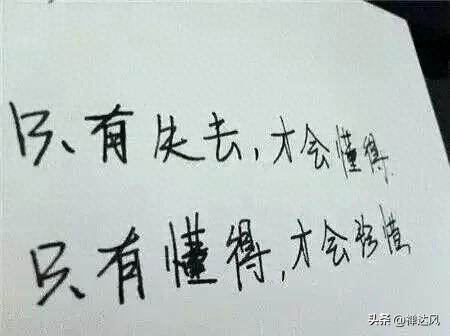 只有失去,才会懂得
只有懂得,才会珍惜
头条 @禅达风